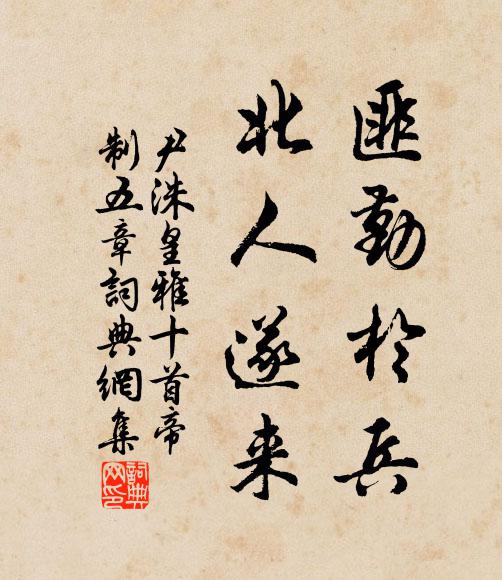 匪勤於兵
北人遂来
尹洙皇雅十首帝
制五章詞典網集
詞典网印